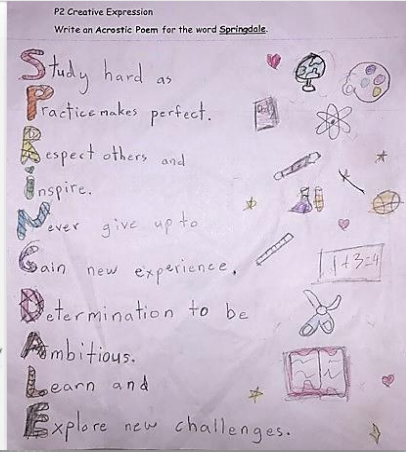 P2 Creative Expression
Write an Acrostic Poem for the word Springdale.
Study hard as
Practice makes perfect.
Respect others and
inspire.
Never give up to
Gain new experience.
Determination to be
Ambitious.
Learn and
Explore new challenges.
1+3=4